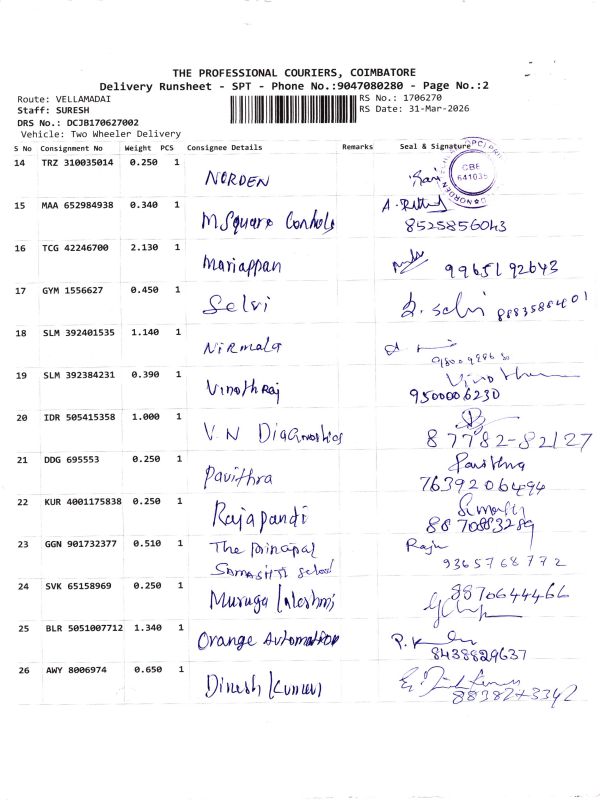 THE PROFESSIONAL COURIERS, COIMBATORE
Delivery Runsheet - SPT - Phone No.:9047080280 - Page No.:2
Route: VELLAMADAI
RS No.: 1706270
Staff: SURESH
RS Date: 31-Mar-2026
DRS No.: DCJB170627002
Vehicle: Two Wheeler Delivery
S No Consignment No Weight PCS Consignee Details Remarks Seal & Signature
14 TRZ 310035014 0.250 1 NORDEN
CBE
641035
15 MAA 652984938 0.340 1 M Square Controls
8525856043
16 TCG 42246700 2.130 1 Mariappan 9965192643
17 GYM 1556627 0.450 1 Selvi
18 SLM 392401535 1.140 1 Nirmala
19 SLM 392384231 0.390 1 Vinothraj
9500006230
20 IDR 505415358 1.000 1 V.N Diagnostics
87782-82127
21 DDG 695553 0.250 1 Pavithra Pavithra
7639206494
22 KUR 4001175838 0.250 1 Rajapandi
8870883289
23 GGN 901732377 0.510 1 The principal
School
9365768772
24 SVK 65158969 0.250 1 Muruga Lakshmi
25 BLR 5051007712 1.340 1 Orange Automation
8438829637
26 AWY 8006974 0.650 1 Dinesh Kumar